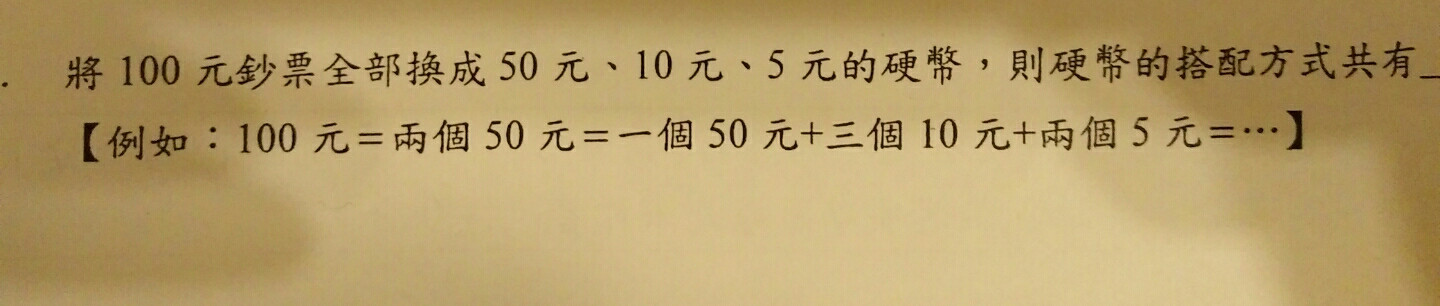 . 將 100 元鈔票全部換成 50 元、10 元、5 元的硬幣，則硬幣的搭配方式共有_
【例如：100 元=兩個 50 元=一個 50 元+三個 10 元+兩個 5 元=⋯】